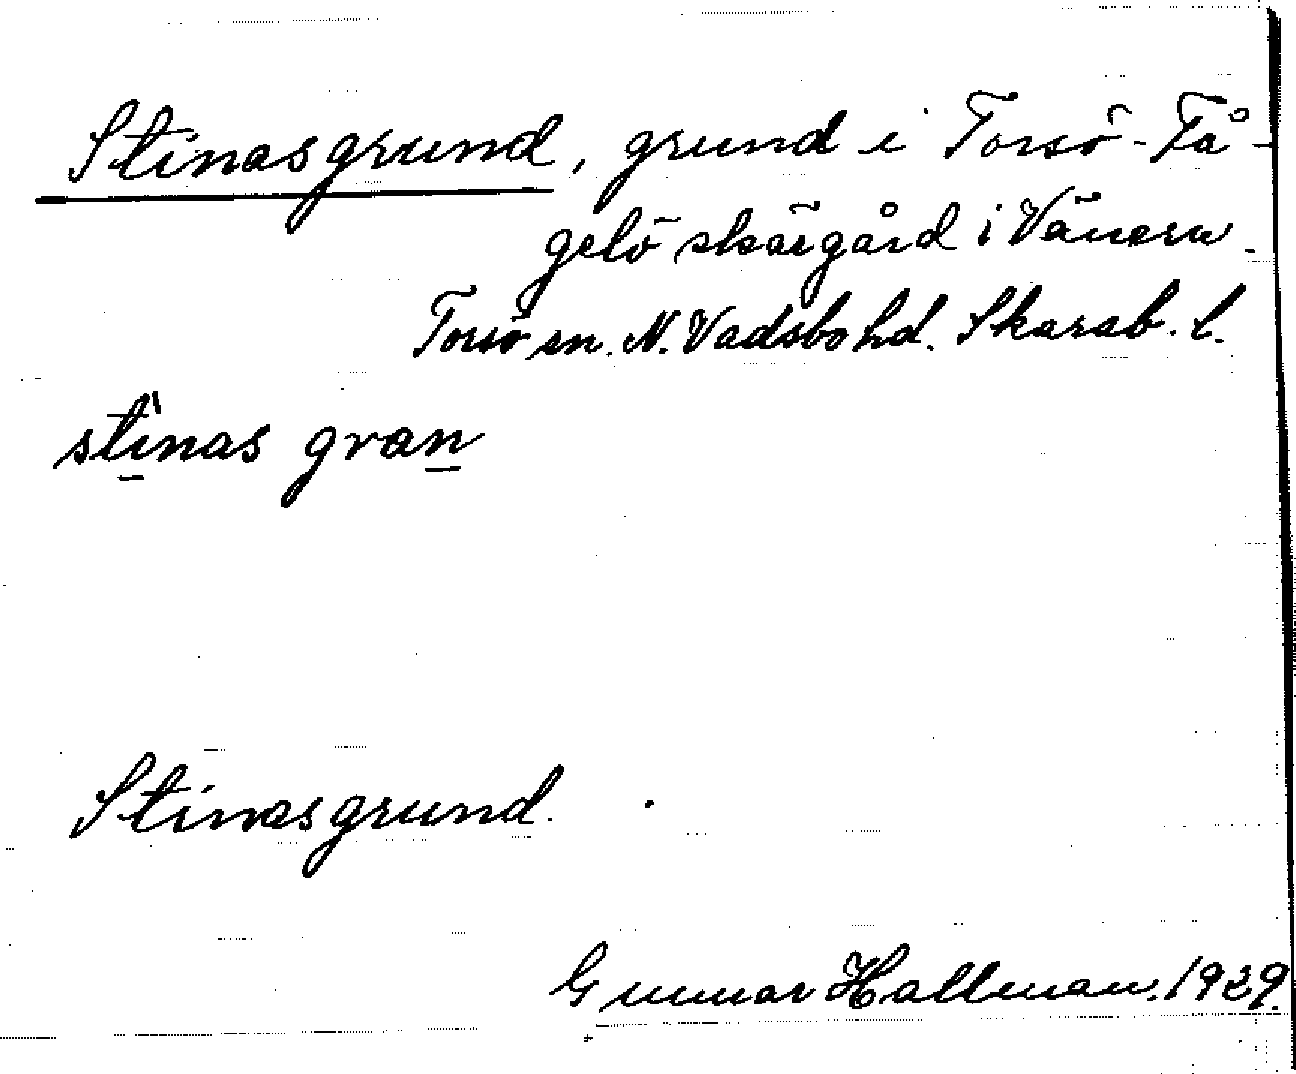 Stinasgrund, grund i Torsö-Få-
gelö skärgård i Vänern.
Torsö sn. N. Vadsbo hd. Skarab. l.
sti̱nas gran̲
Stinasgrund.
Gunnar Hallman. 1929.